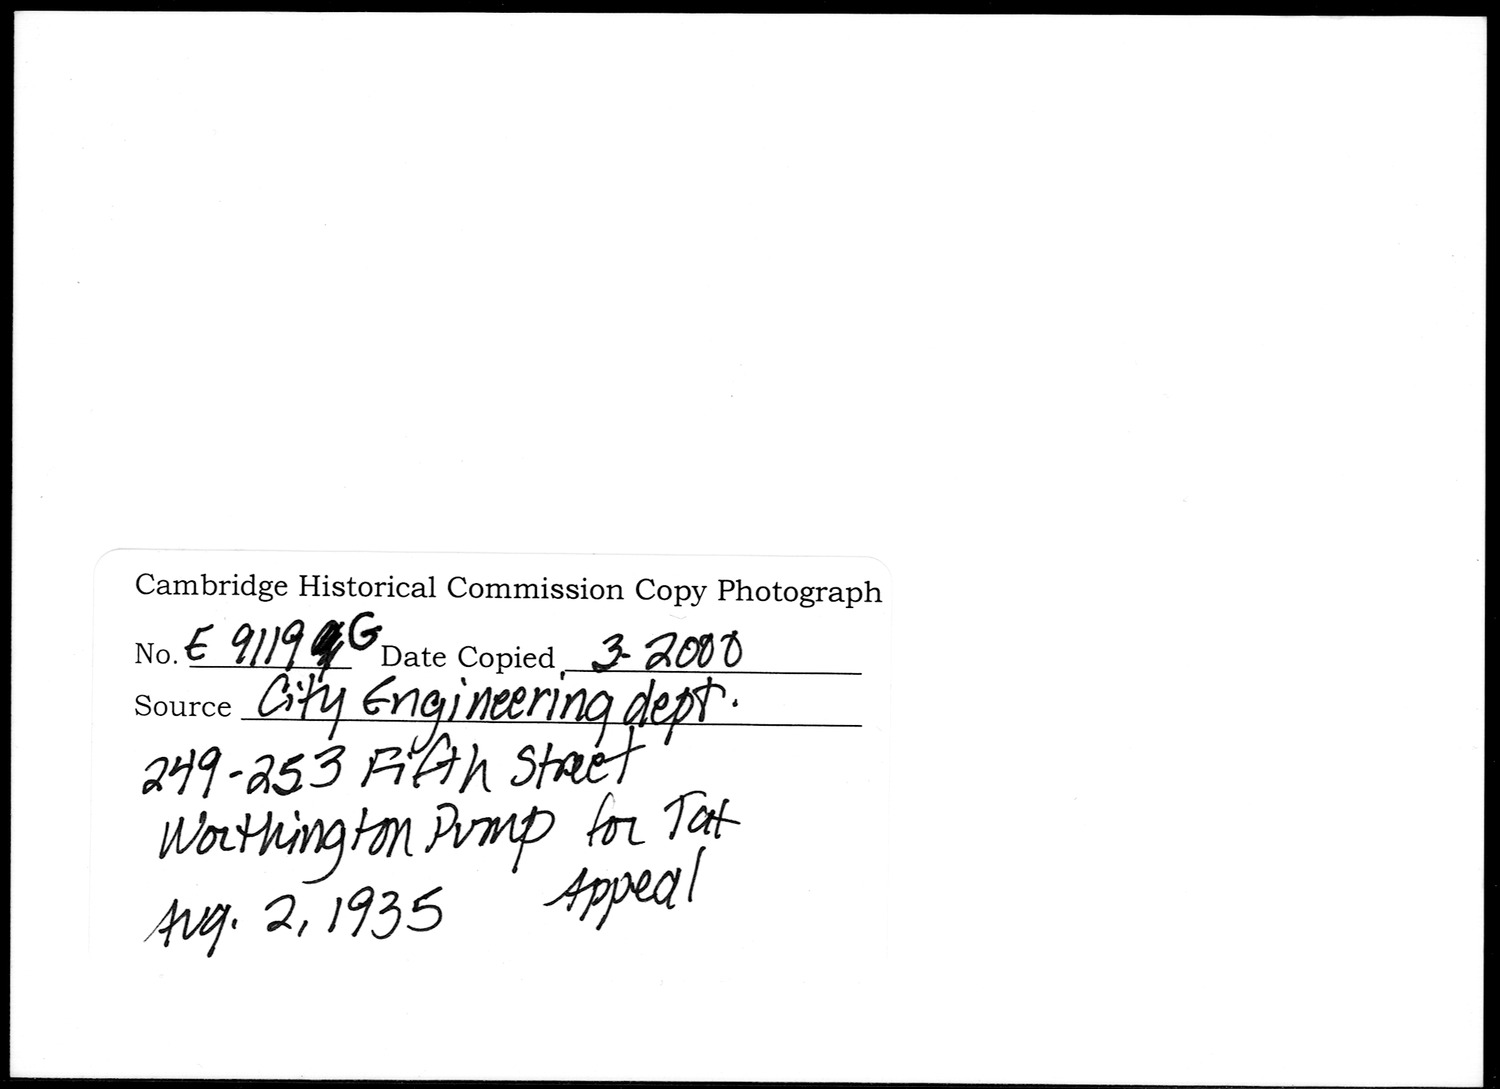 Cambridge Historical Commission Copy Photograph
No. E 9119 G Date Copied 3-2000
Source City Engineering dept.
249-253 Fifth Street
Worthington Pump for Tax
Appeal
Aug. 2, 1935